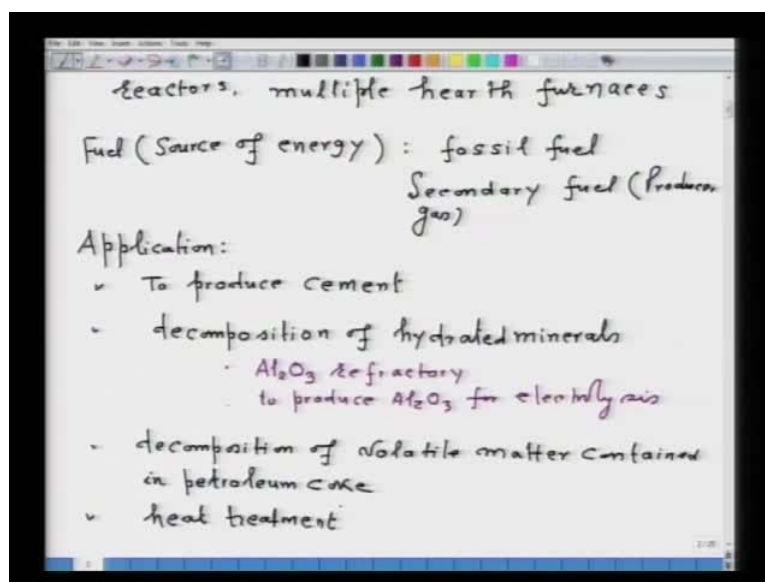 reactors. multiple hearth furnaces
Fuel (Source of energy) : fossil fuel
Secondary fuel (Producer
gas)
Application:
To produce cement
decomposition of hydrated minerals
Al2O3 refractory
to produce Al2O3 for electrolysis
decomposition of volatile matter contained
in petroleum coke
heat treatment